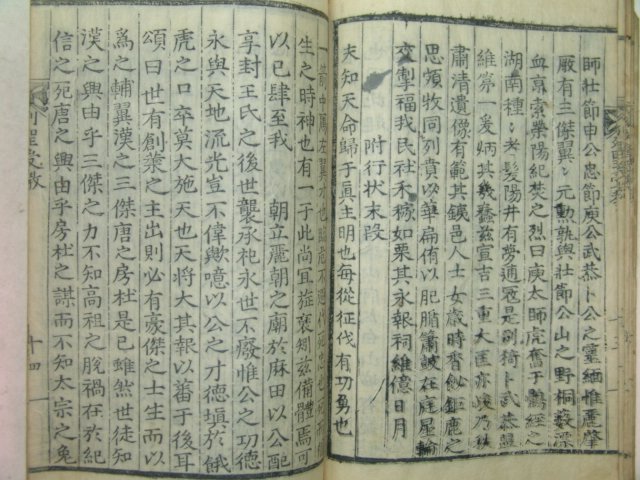 師壯節申公忠節庾公武恭卜公之靈緬惟麗肇
厥有三傑翼元勳孰與壯節公山之野桐藪漂
血裒索滎陽紀焚之烈曰庾太師虎奮于鵄經之
湖南種老髮陽井有夢通冠是荊倚卜武恭
維第一爰炳其幾蠢玆宣吉三重大匡亦
肅清遺像有範其鐵邑人士女歲時香飶鉅鹿之
思頗牧同列賁以華扁侑以肥腯簫鼓在庭星輪
交掣福我民社禾稼如栗其永報祠維億日月
附行狀末段
未知天命歸于眞主明也每從征伐有功勇也
生之時神也有一子此尚冝旌褒矧玆備體焉可
以已肆至我 朝立麗朝之廟於麻田以公配
享封王氏之後世襲承祀永世不廢惟公功德
永與天地流光豈不偉歟噫以公之才德塡於餓
虎之口卒莫大施天也天將大其報以蕃于後耳
頌曰世有創業之主出則必有豪傑之士生而以
爲之輔翼漢之三傑唐之房杜是已雖然世徒知
漢之興由乎三傑之力不知高祖之脫禍在於紀
信之死唐之興由乎房杜之謀而不知太宗之免
十四